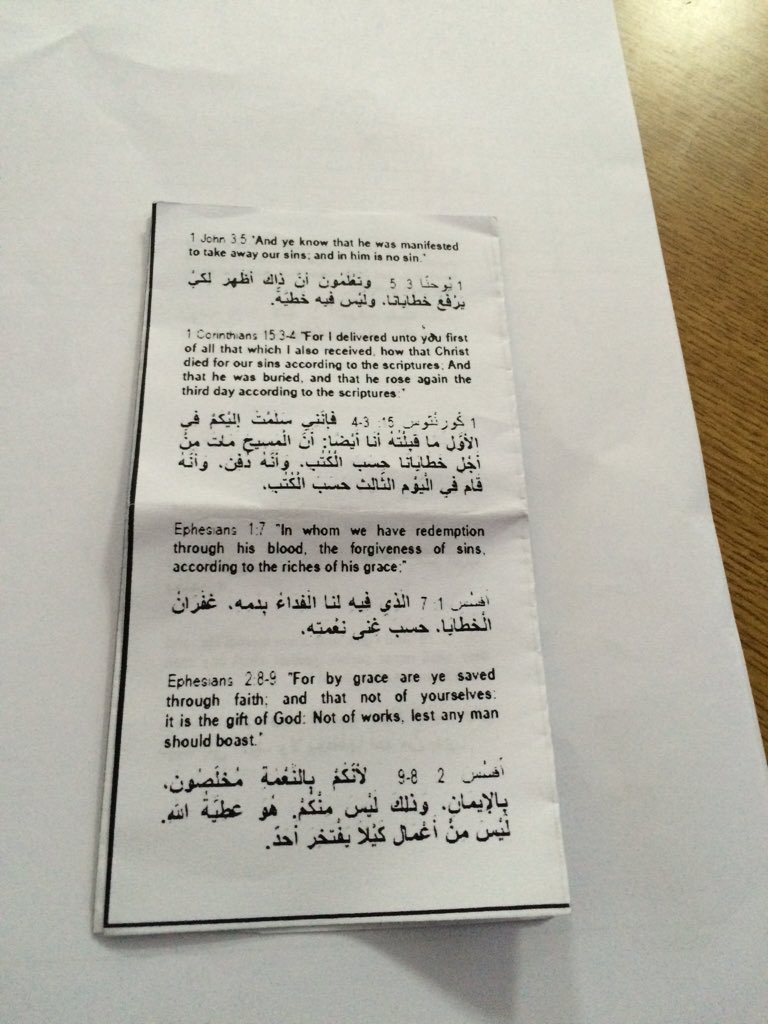 1 John 3:5 "And ye know that he was manifested
to take away our sins; and in him is no sin."
1 يُوحنّا 3 5 وتعْلمُون أنّ ذاك أظهر لكيْ
يرْفع خطايانا، وليْس فيه خطيّة.
1 Corinthians 15:3-4 "For I delivered unto you first
of all that which I also received, how that Christ
died for our sins according to the scriptures; And
that he was buried, and that he rose again the
third day according to the scriptures:"
1 كُورنْثوس 15: 3-4 فإنّني سلّمْتُ إليْكُمْ في
الأوّل ما قبلْتُهُ أنا أيْضا: أنّ الْمسيح مات منْ
أجْل خطايانا حسب الْكُتُب، وأنّهُ دُفن، وأنّهُ
قام في الْيوْم الثّالث حسبَ الْكُتُب،
Ephesians 1:7 "In whom we have redemption
through his blood, the forgiveness of sins,
according to the riches of his grace;"
أفسُس 1: 7 الّذي فيه لنا الْفداءُ بدمه، غُفْرانُ
الْخطايا، حسب غنى نعْمته،
Ephesians 2:8-9 "For by grace are ye saved
through faith; and that not of yourselves:
it is the gift of God: Not of works, lest any man
should boast."
أفسُس 2 8-9 لأنّكُمْ بالنّعْمة مُخلّصُون،
بالإيمان، وذلك ليْس منْكُمْ. هُو عطيّةُ الله.
ليْس منْ أعْمال كيْلا يفْتخر أحدٌ.